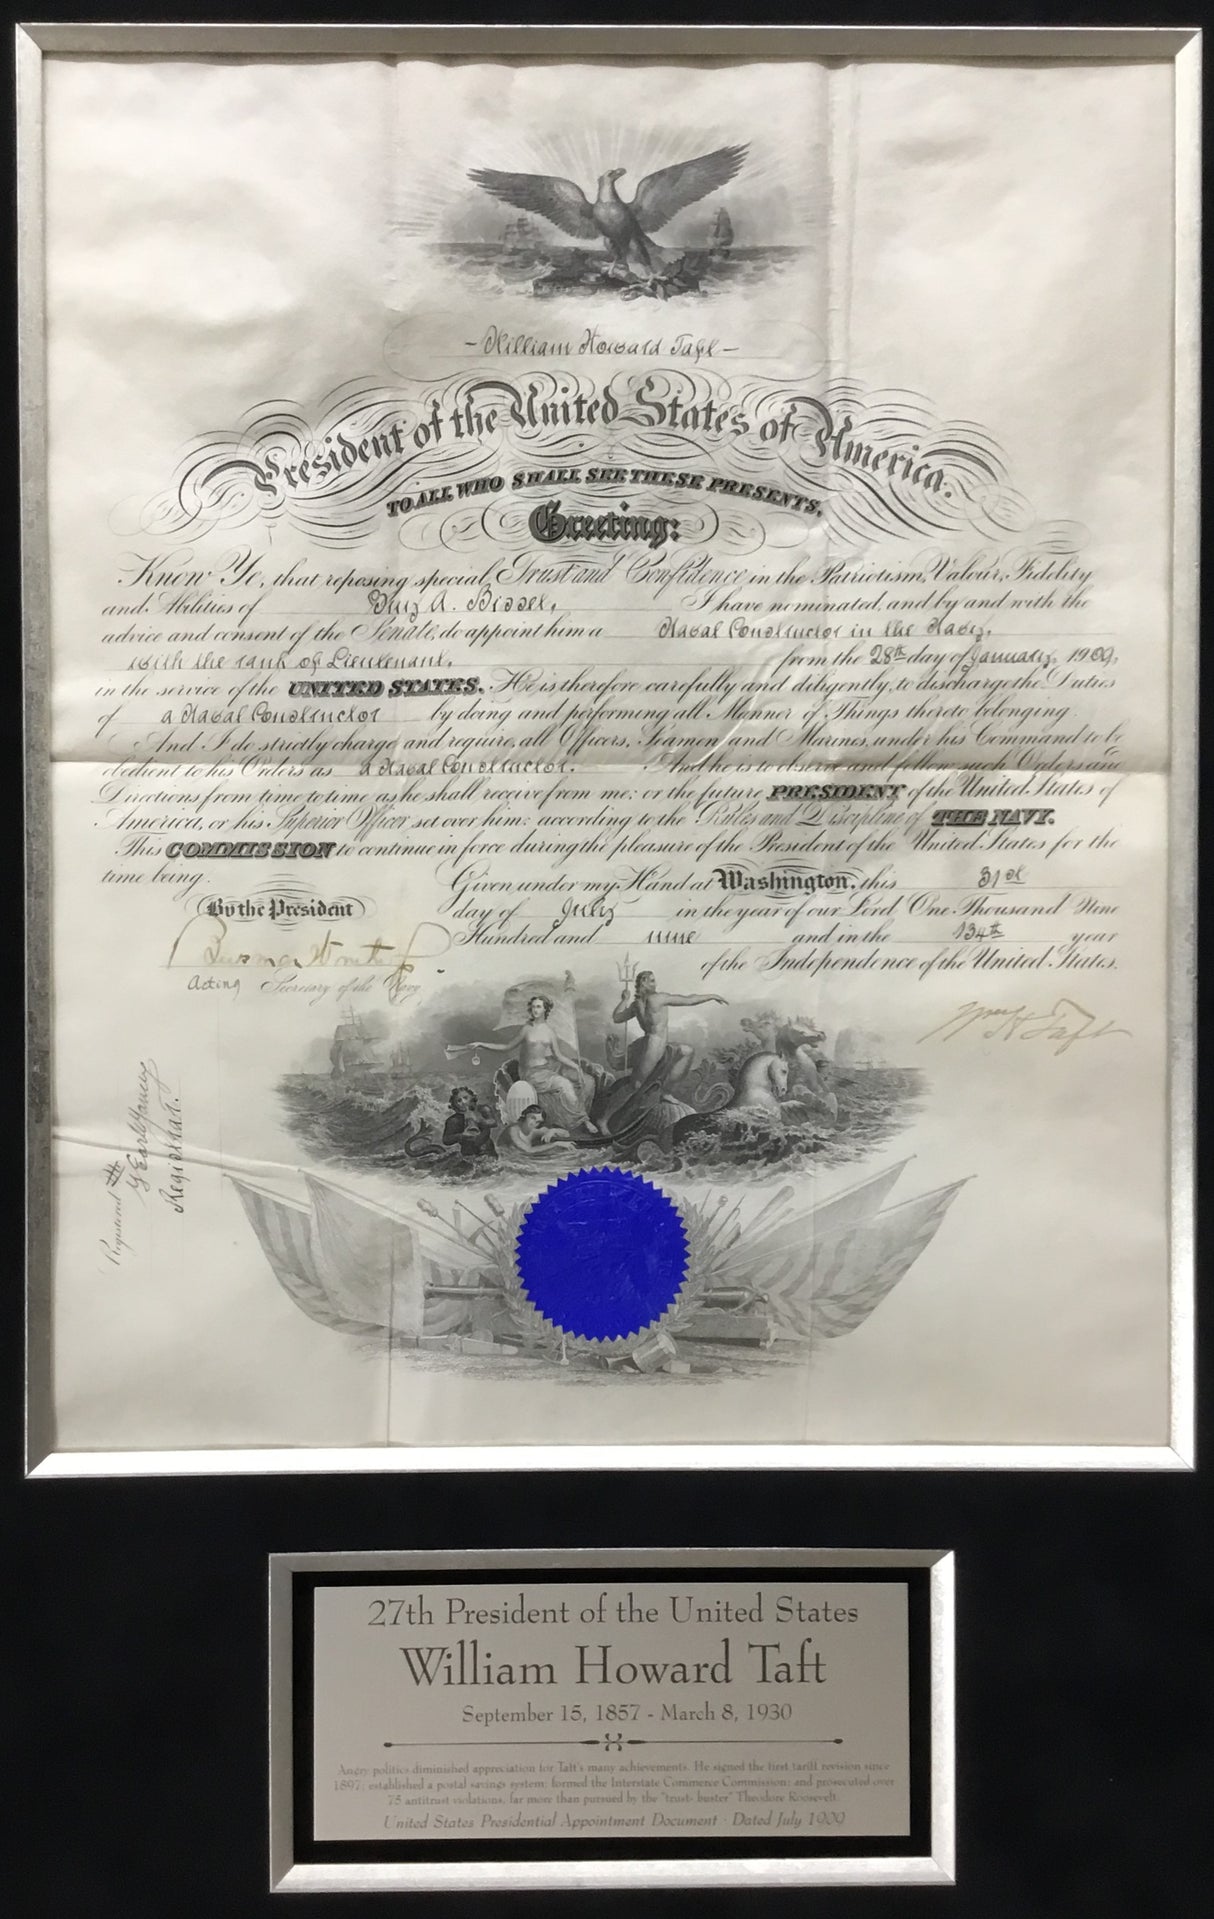 - William Howard Taft -
President of the United States of America.
TO ALL WHO SHALL SEE THESE PRESENTS,
Greeting:
Know Ye, that reposing special Trust and Confidence in the Patriotism, Valour, Fidelity
and Abilities of Guy A. Bisset, I have nominated, and by and with the
advice and consent of the Senate, do appoint him a Naval Constructor in the Navy,
with the rank of Lieutenant, from the 28th day of January, 1909,
in the service of the UNITED STATES. He is therefore carefully and diligently, to discharge the Duties
of a Naval Constructor by doing and performing all Manner of Things thereto belonging.
And I do strictly charge and require, all Officers, Seamen and Marines, under his Command to be
obedient to his Orders as a Naval Constructor. And he is to observe and follow such Orders and
Directions from time to time as he shall receive from me: or the future PRESIDENT of the United States of
America, or his Superior Officer set over him: according to the Rules and Discipline of THE NAVY.
This COMMISSION to continue in force during the pleasure of the President of the United States for the
time being.
Given under my Hand at Washington, this 31st
day of July in the year of our Lord One Thousand Nine
Hundred and nine and in the 134th year
of the Independence of the United States.
By the President
Acting Secretary of the Navy
Wm H Taft
Registered
Registrar.
27th President of the United States
William Howard Taft
September 15, 1857 - March 8, 1930
Angry politics diminished appreciation for Taft's many achievements. He signed the first tariff revision since
1897; established a postal savings system; formed the Interstate Commerce Commission; and prosecuted over
75 antitrust violations, far more than pursued by the "trust- buster" Theodore Roosevelt.
United States Presidential Appointment Document · Dated July 1909